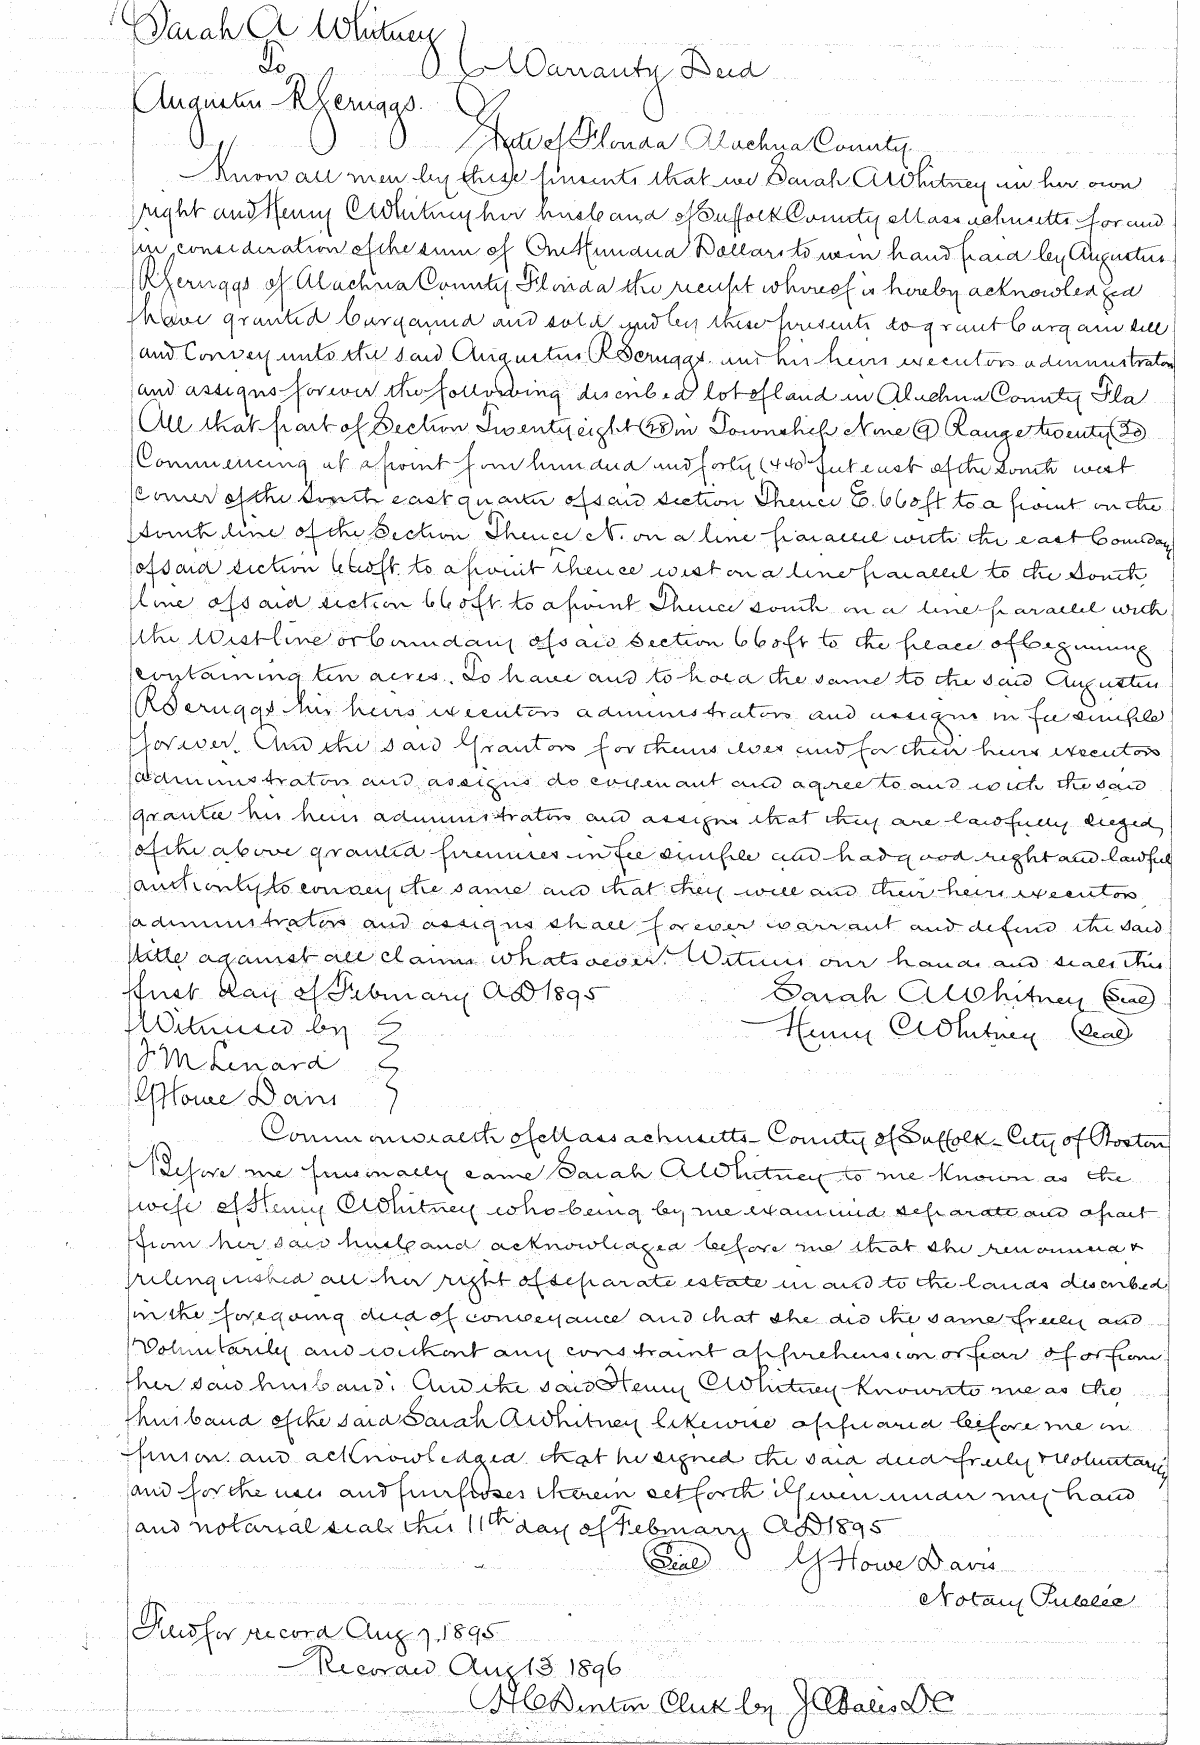 Sarah A Whitney
To
Warranty Deed
Augustus R Scruggs.
State of Florida Alachua County.
Know all men by these presents that we Sarah A Whitney in her own
right and Henry C Whitney her husband of Suffolk County Massachusetts for and
in consideration of the sum of One Hundred Dollars to us in hand paid by Augustus
R Scruggs of Alachua County Florida the receipt whereof is hereby acknowledged
have granted bargained and sold and by these presents do grant bargain sell
and Convey unto the said Augustus R Scruggs and his heirs executors administrators
and assigns forever the following described lot of land in Alachua County Fla
All that part of Section Twenty eight (28) in Township Nine (9) Range twenty (20)
Commencing at a point four hundred and forty (440) feet east of the South west
corner of the South east quarter of said section Thence E. 660 ft to a point on the
south line of the Section Thence N. on a line parallel with the east boundary
of said section 660 ft. to a point thence west on a line parallel to the South
line of said section 660 ft. to a point Thence south on a line parallel with
the West line or boundary of said section 660 ft to the place of beginning
containing ten acres. To have and to hold the same to the said Augustus
R Scruggs his heirs executors administrators and assigns in fee simple
forever. And the said Grantors for themselves and for their heirs executors
administrators and assigns do covenant and agree to and with the said
grantee his heirs administrators and assigns that they are lawfully siezed
of the above granted premises in fee simple and had good right and lawful
authority to convey the same and that they will and their heirs executors
administrators and assigns shall forever warrant and defend the said
title against all claims whatsoever. Witness our hands and seals this
first day of February AD 1895 Sarah A Whitney (Seal)
Witnessed by Henry C Whitney (Seal)
J M Lenard
G Howe Davis
Commonwealth of Massachusetts - County of Suffolk - City of Boston
Before me personally came Sarah A Whitney to me known as the
wife of Henry C Whitney who being by me examined separate and apart
from her said husband acknowledged before me that she renounced &
relinquished all her right of separate estate in and to the lands described
in the foregoing deed of conveyance and that she did the same freely and
voluntarily and without any constraint apprehension or fear of or from
her said husband. And the said Henry C Whitney known to me as the
husband of the said Sarah A Whitney likewise appeared before me in
person and acknowledged that he signed the said deed freely & voluntarily
and for the uses and purposes therein set forth Given under my hand
and notarial seal this 11th day of February AD 1895
(Seal) G Howe Davis
Notary Public
Filed for record Aug 7, 1895
Recorded Aug 13 1896
H C Denton Clerk by D.C